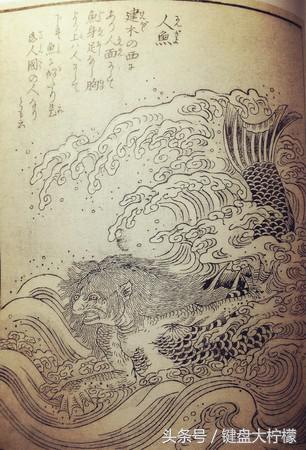 人魚
建木の西に
あり人面にして
魚身足なし胸
より上ハ人にして
下ハ魚に似たり是
氐人国の人なり
とも云
头条号／键盘大柠檬